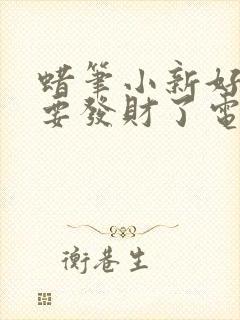 蜡筆小新好
要發財了電
衡巷生